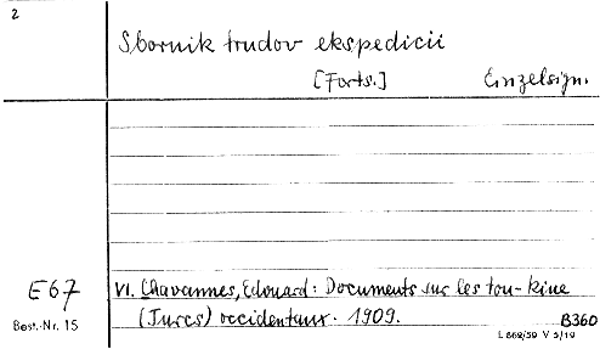 2
Sbornik trudov ekspedicii
[Forts.] Einzelsign.
E67
VI. Chavannes, Edouard: Documents sur les tou-kiue
(Turcs) occidentaux. 1909.
B360
Best.-Nr. 15
L 868/59 V 5/19